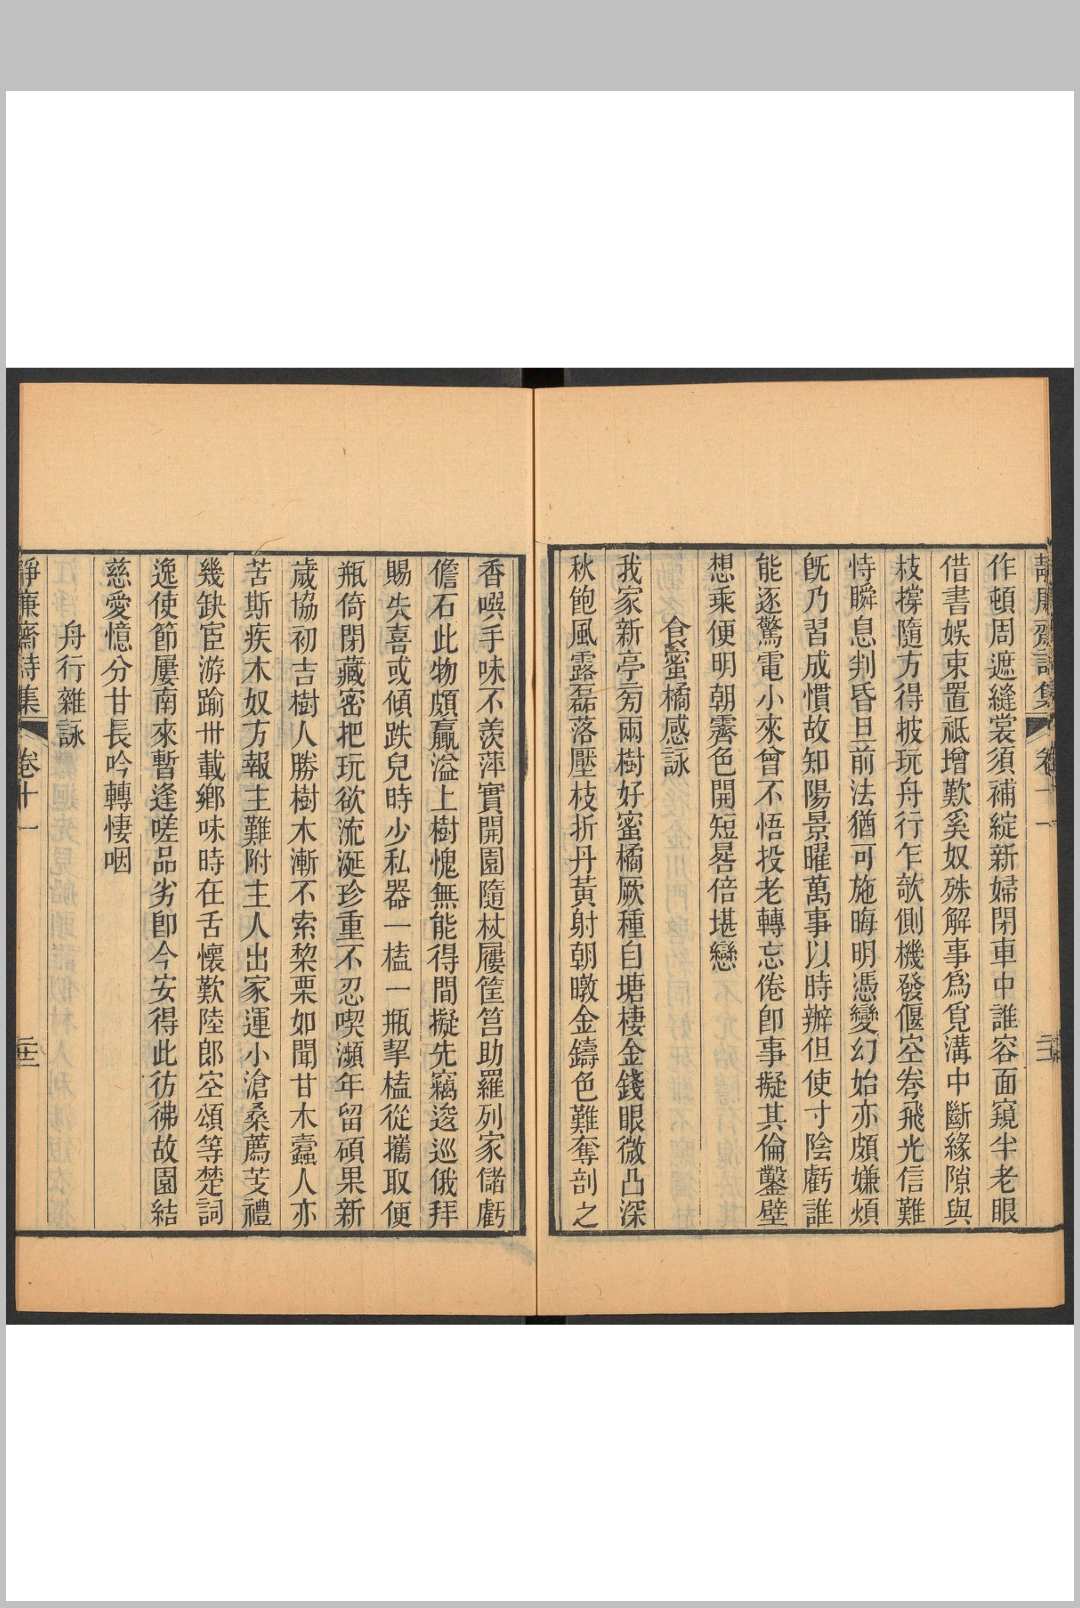 靜廉齋詩集 卷十一
作頓周遮縫裳須補綻新婦閉車中誰容面窺半老眼
借書娛束置祗增歎奚奴殊解事爲覓溝中斷緣隙與
枝撐隨方得披玩舟行乍欹側機發偃空劵飛光信難
恃瞬息判昏旦前法猶可施晦明憑變幻始亦頗嫌煩
旣乃習成慣故知陽景曜萬事以時辦但使寸陰虧誰
能逐驚電小來曾不悟投老轉忘倦卽事擬其倫鑿壁
想乘便明朝霽色開短晷倍堪戀
食蜜橘感詠
我家新亭旁兩樹好蜜橘厥種自塘棲金錢眼微凸深
秋飽風露磊落壓枝折丹黃射朝暾金鑄色難奪剖之
香噀手味不羨萍實開園隨杖屨筐筥助羅列家儲虧
儋石此物頗贏溢上樹愧無能得間擬先竊逡巡俄拜
賜失喜或傾跌兒時少私器一榼一瓶挈榼從攜取便
瓶倚閉藏密把玩欲流涎珍重不忍喫瀕年留碩果新
歲協初吉樹人勝樹木漸不索棃栗如聞甘木蠹人亦
苦斯疾木奴方報主難附主人出家運小滄桑薦芰禮
幾缺宦游踰卅載鄉味時在舌懷歎陸郎空頌等楚詞
逸使節屢南來暫逢嗟品劣卽今安得此彷彿故園結
慈愛憶分甘長吟轉悽咽
舟行雜詠
靜廉齋詩集 卷十一 二十二